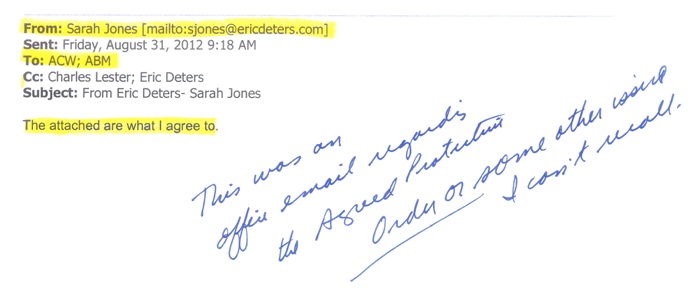 From: Sarah Jones [mailto:sjones@ericdeters.com]
Sent: Friday, August 31, 2012 9:18 AM
To: ACW; ABM
Cc: Charles Lester; Eric Deters
Subject: From Eric Deters- Sarah Jones
The attached are what I agree to.
This was an
office email regards
the Agreed Protective
Order or some other issue
I can't recall.